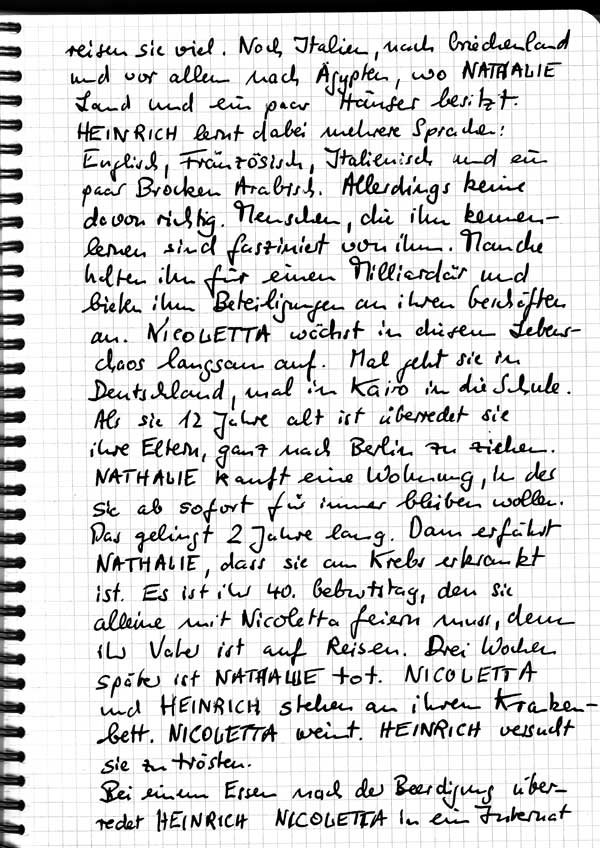 reisen sie viel. Nach Italien, nach Griechenland
und vor allem nach Ägypten, wo NATHALIE
Land und ein paar Häuser besitzt.
HEINRICH lernt dabei mehrere Sprachen:
Englisch, Französisch, Italienisch und ein
paar Brocken Arabisch. Allerdings keine
davon richtig. Menschen, die ihn kennen-
lernen sind fasziniert von ihm. Manche
halten ihn für einen Milliardär und
bieten ihm Beteiligungen an ihren Geschäften
an. NICOLETTA wächst in diesem Lebens-
chaos langsam auf. Mal geht sie in
Deutschland, mal in Kairo in die Schule.
Als sie 12 Jahre alt ist überredet sie
ihre Eltern, ganz nach Berlin zu ziehen.
NATHALIE kauft eine Wohnung, in der
sie ab sofort für immer bleiben wollen.
Das gelingt 2 Jahre lang. Dann erfährt
NATHALIE, dass sie an Krebs erkrankt
ist. Es ist ihr 40. Geburtstag, den sie
alleine mit Nicoletta feiern muss, denn
ihr Vater ist auf Reisen. Drei Wochen
später ist NATHALIE tot. NICOLETTA
und HEINRICH stehen an ihrem Kranken-
bett. NICOLETTA weint. HEINRICH versucht
sie zu trösten.
Bei einem Essen nach der Beerdigung über-
redet HEINRICH NICOLETTA in ein Internat